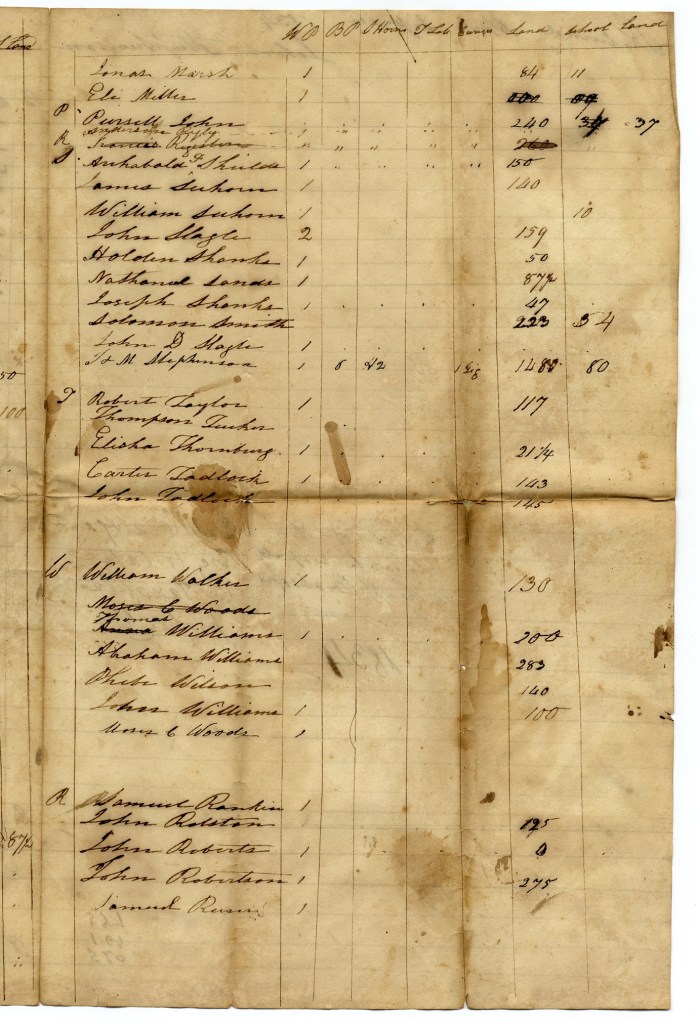 W P B P S Horses T Lots Land School Land
Jonas Marsh 1 84 11
Eli Miller 1
P Pursell John 240 37
Anderson
R Francis
S Archabald F Shields 1 150
James Suhorn 140
William Suhorn 1 10
John Slagle 2 159
Holden Shanks 1 50
Nathanel Sands 1 87½
Joseph Shanks 1 47
Solomon Smith 223 54
John D Slagle 1
J & M Stephenson 1 6 1480 80
50
T Robert Taylor 1 117
100
Thompson Tucker
Elisha Thornburg 1 21¼
Carter Tadlock 1 143
John Tadlock 145
W William Walker 1 130
Moses C Woods
Thomas
Williams 1 200
Abraham Williams 283
Phebe Wilson 140
John Williams 1 100
Moses C Woods 1
R Samuel Rankin 1
John Rolston 125
87½
John Roberts 1 0
John Robertson 1 275
Samuel 1